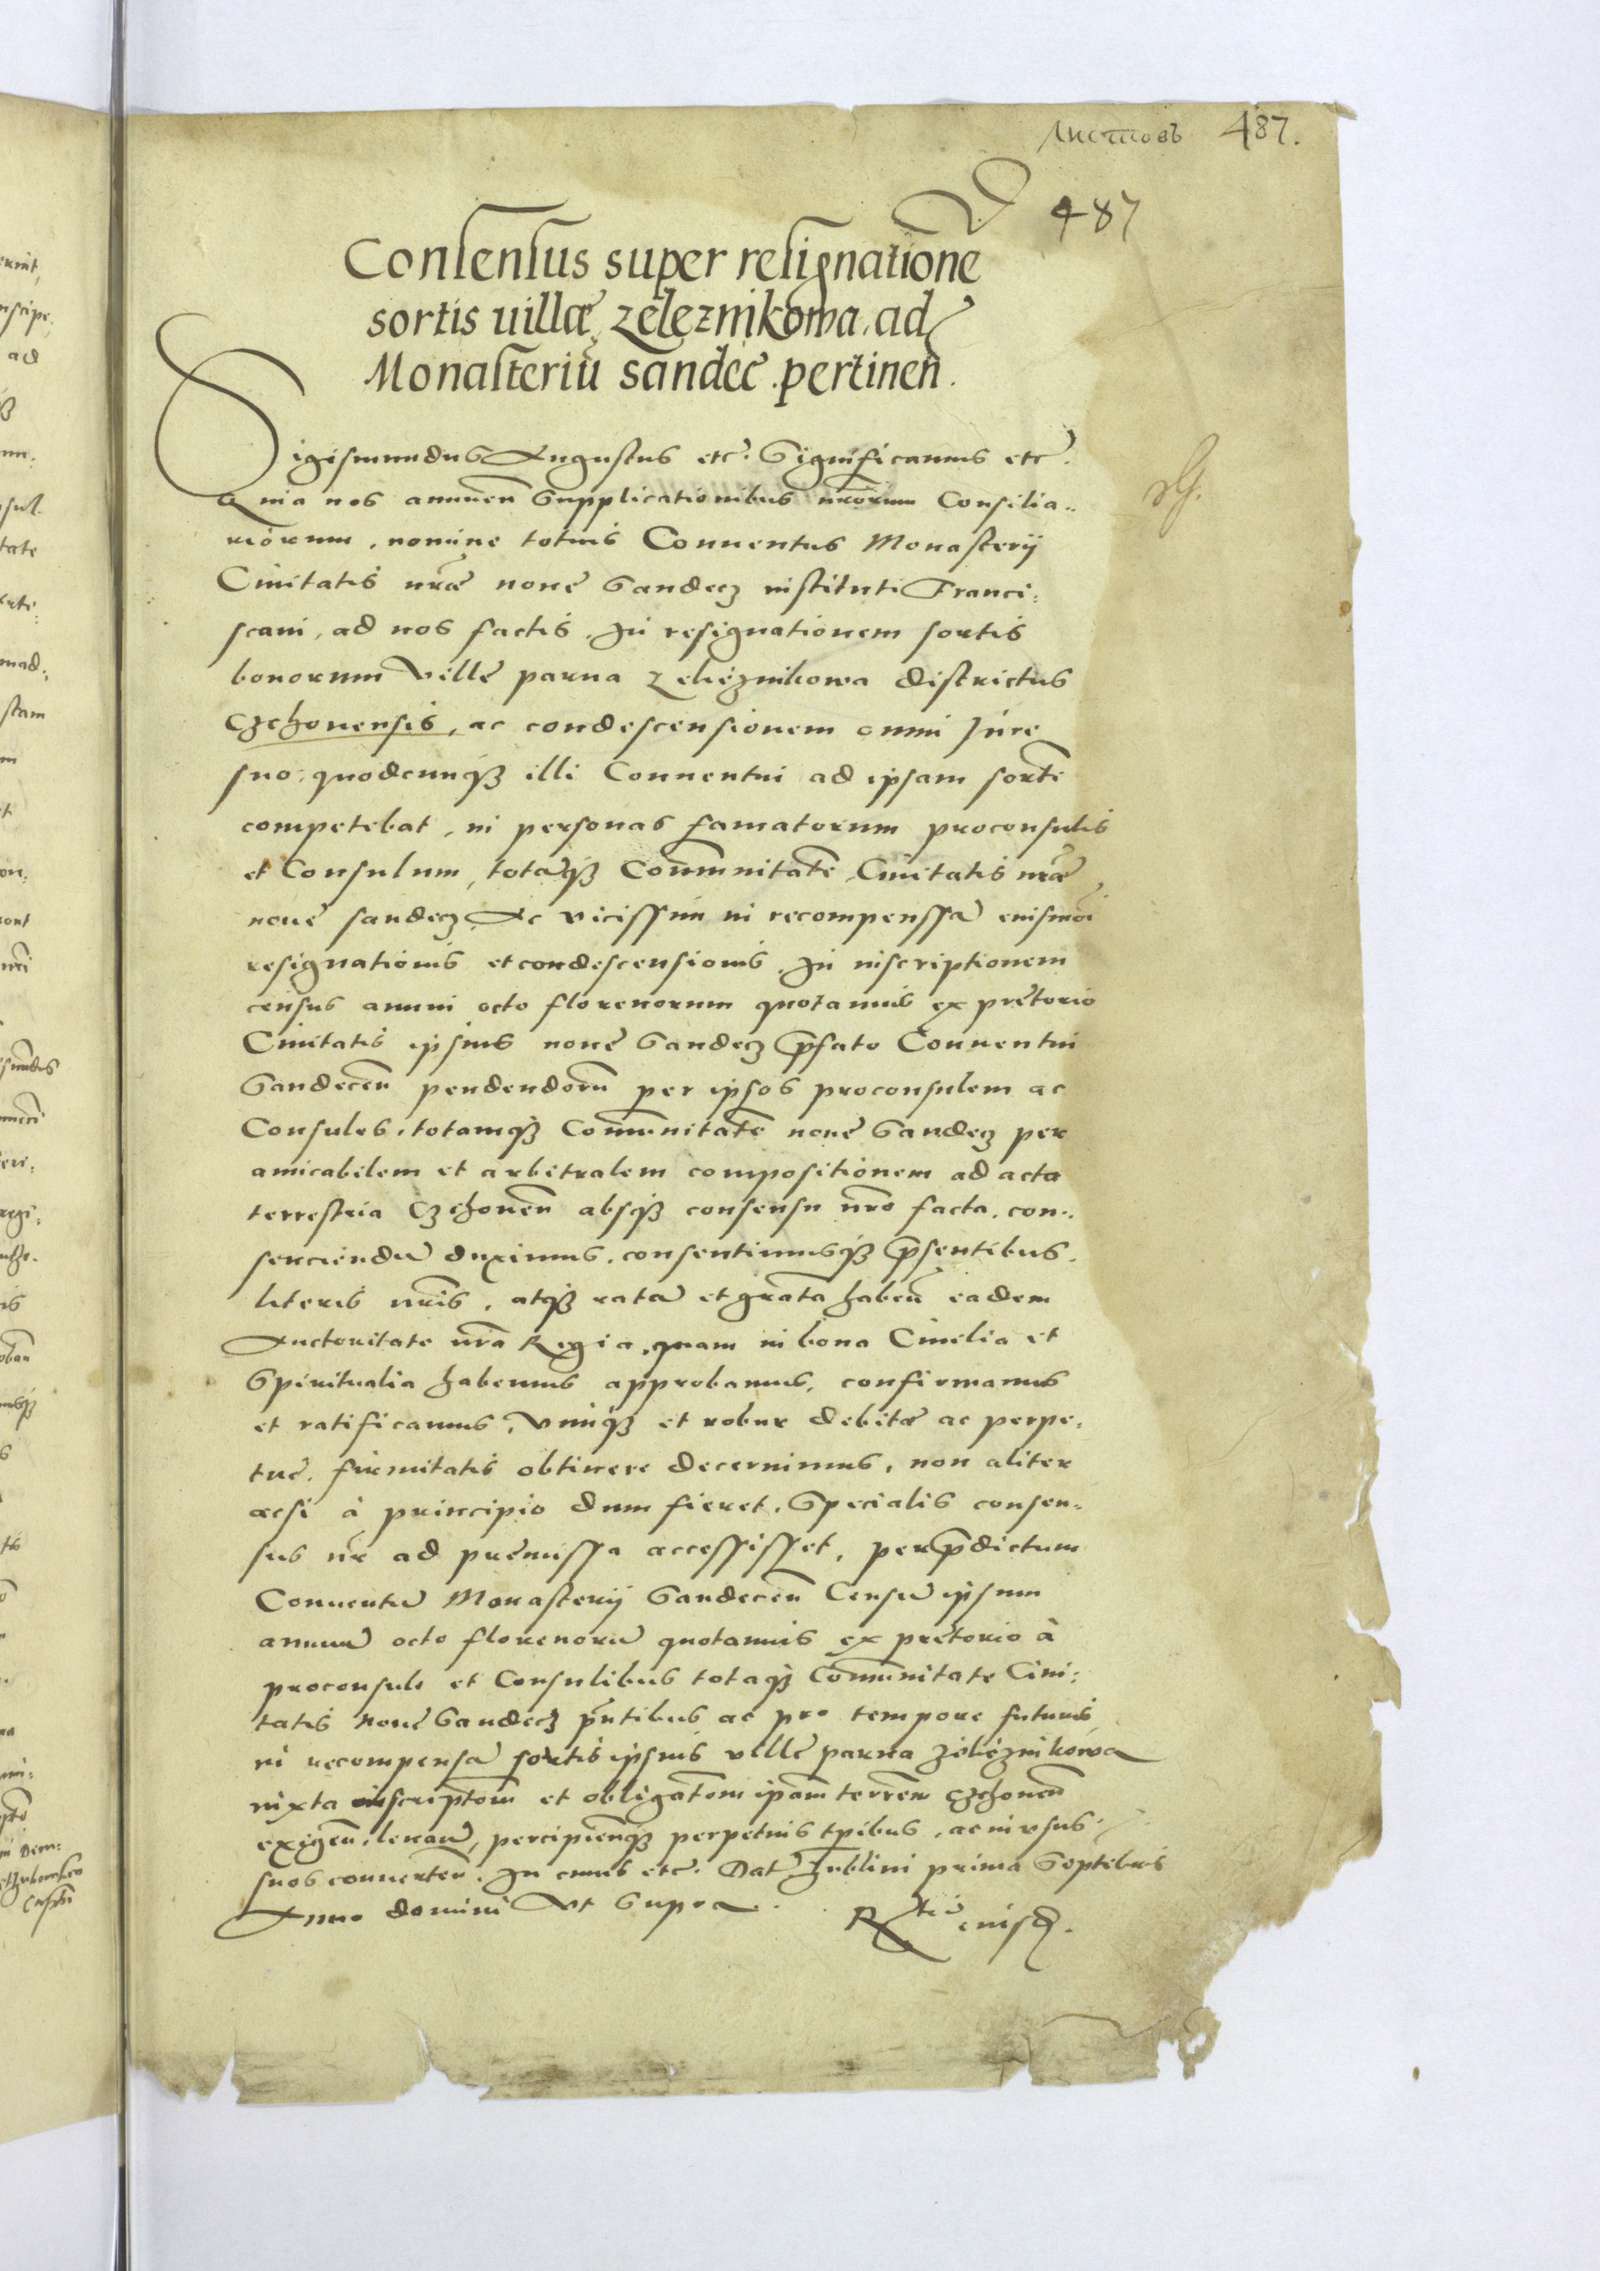 листовъ 487.
487
Consensus super resignatione
sortis uillæ zelęznikowa, ad
Monasteriū sandec̄ pertineñ.
Sigismundus Augustus etc̄. Significamus etc̄.
Quia nos annueñ Supplicationibus nr̄orum Consilia-
riorum, nomine totius Conuentus Monasterij
Ciuitatis nr̄æ nouę Sandecz instituti Franci-
scani, ad nos factis, In resignationem sortis
bonorum Villę parua Zeliéznikowa districtus
Czchouensis, ac condescensionem omni Jure
suo, quodcunqꝫ illi Conuentui ad ipsam sortē
competebat, in personas famatorum proconsulis
et Consulum, totāqꝫ Com̄unitatē Ciuitatis nr̄æ
nouę sandecz, Ac vicissim in recompenssā eiusmōi
resignationis et condescensionis, In inscriptionem
census annui octo florenorum quotannis ex prętorio
Ciuitatis ipsius nouę Sandecz p̄fato Conuentui
Sandeceñ pendendorū per ipsos proconsulem ac
Consules, totamqꝫ Com̄unitatē nouę Sandecz per
amicabilem et arbitralem compositionem ad acta
terrestria Czchoueñ absqꝫ consensu nr̄o facta, con-
senciendū duximus, consentimusqꝫ p̄sentibus
literis nr̄is, atqꝫ ratā et grātā habeñ eadem
Auctoritate nr̄a Regia, quam in bona Ciuilia et
Spiritualia habemus approbamus, confirmamus
et ratificamus, Vimqꝫ et robur debitæ ac perpe-
tuę firmitatis obtinere decernimus, non aliter
acsi à principio dum fieret, Specialis consen-
sus nr̄ ad pręmissa accessisset, per p̄dictum
Conuentū Monasterij Sandeceñ Censū ipsum
annuū octo florenorū quotannis ex prętorio à
proconsule et Consulibus totaqꝫ Com̄unitate Ciui-
tatis nouę Sandecz pn̄tibus ac pro tempore futuris
in recompensā sortis ipsius villę parua zeliéznikowa
iuxta inscriptōm et obligatōm ipām terreñ Czchoueñ
exigeñ, leuañ, percipieñqꝫ perpetuis tp̄ibus, ac in vsus
suos conuerteñ. In cuius etc̄. Dat̄ Lublini prima Septēbris
Anno domini Vt Supra.
Rtio eiusd̄.